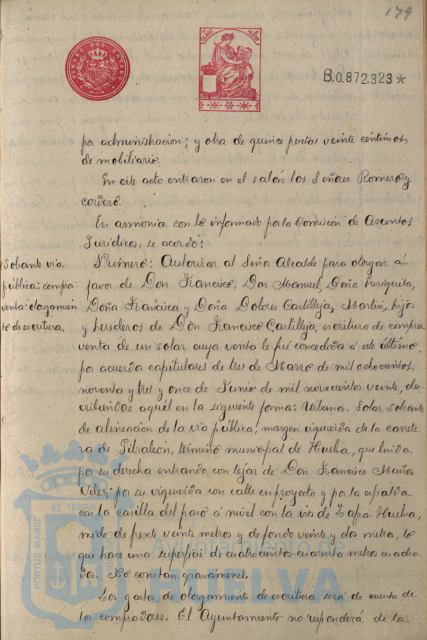 179
B.0.872.323*
por administracion; y otra de quince pesetas veinte centimos
de mobiliario.
En este acto entraron en el salón los Señores Romero y
Cordero.
En armonia con lo informado por la Comisión de Asuntos
Jurídicos, se acordó:
Sobante via
pública: compra
venta: otorgamien
to de escritura.
Primero: Autorizar al Señor Alcalde para otorgar a
favor de Don Francisco, Don Manuel, Doña Enriqueta,
Doña Francisca y Doña Dolores Castilleja, Martin, hijos
y herederos de Don Francisco Castilleja, escritura de compra
venta de un solar cuya venta le fué concedida a este último
por acuerdo capitulares de tres de Marzo de mil ochocientos,
noventa y tres y once de Junio de mil novecientos veinte, des
cribiendose aquel en la siguiente forma: Urbana. Solar sobante
de alineacion de la via pública, margen izquierda de la carrete
ra de Gibraleón, termino municipal de Huelva, que linda
por su derecha entrando con tejar de Don Francisco Muñoz
Velez; por su izquierda con calle en proyecto y por la espalda
con la casilla del paso a nivel con la via de Zafra Huelva,
mide de frente veinte metros y de fondo veinte y dos metros, lo
que hace una superficie de cuatrocientos cuarenta metros cuadra
dos. No constan gravámenes.
Los gastos de otorgamiento de escritura será de cuenta de
los compradores. El Ayuntamiento no responderá de la
PORTUS MARIS
ET TERRAE
HUELVA